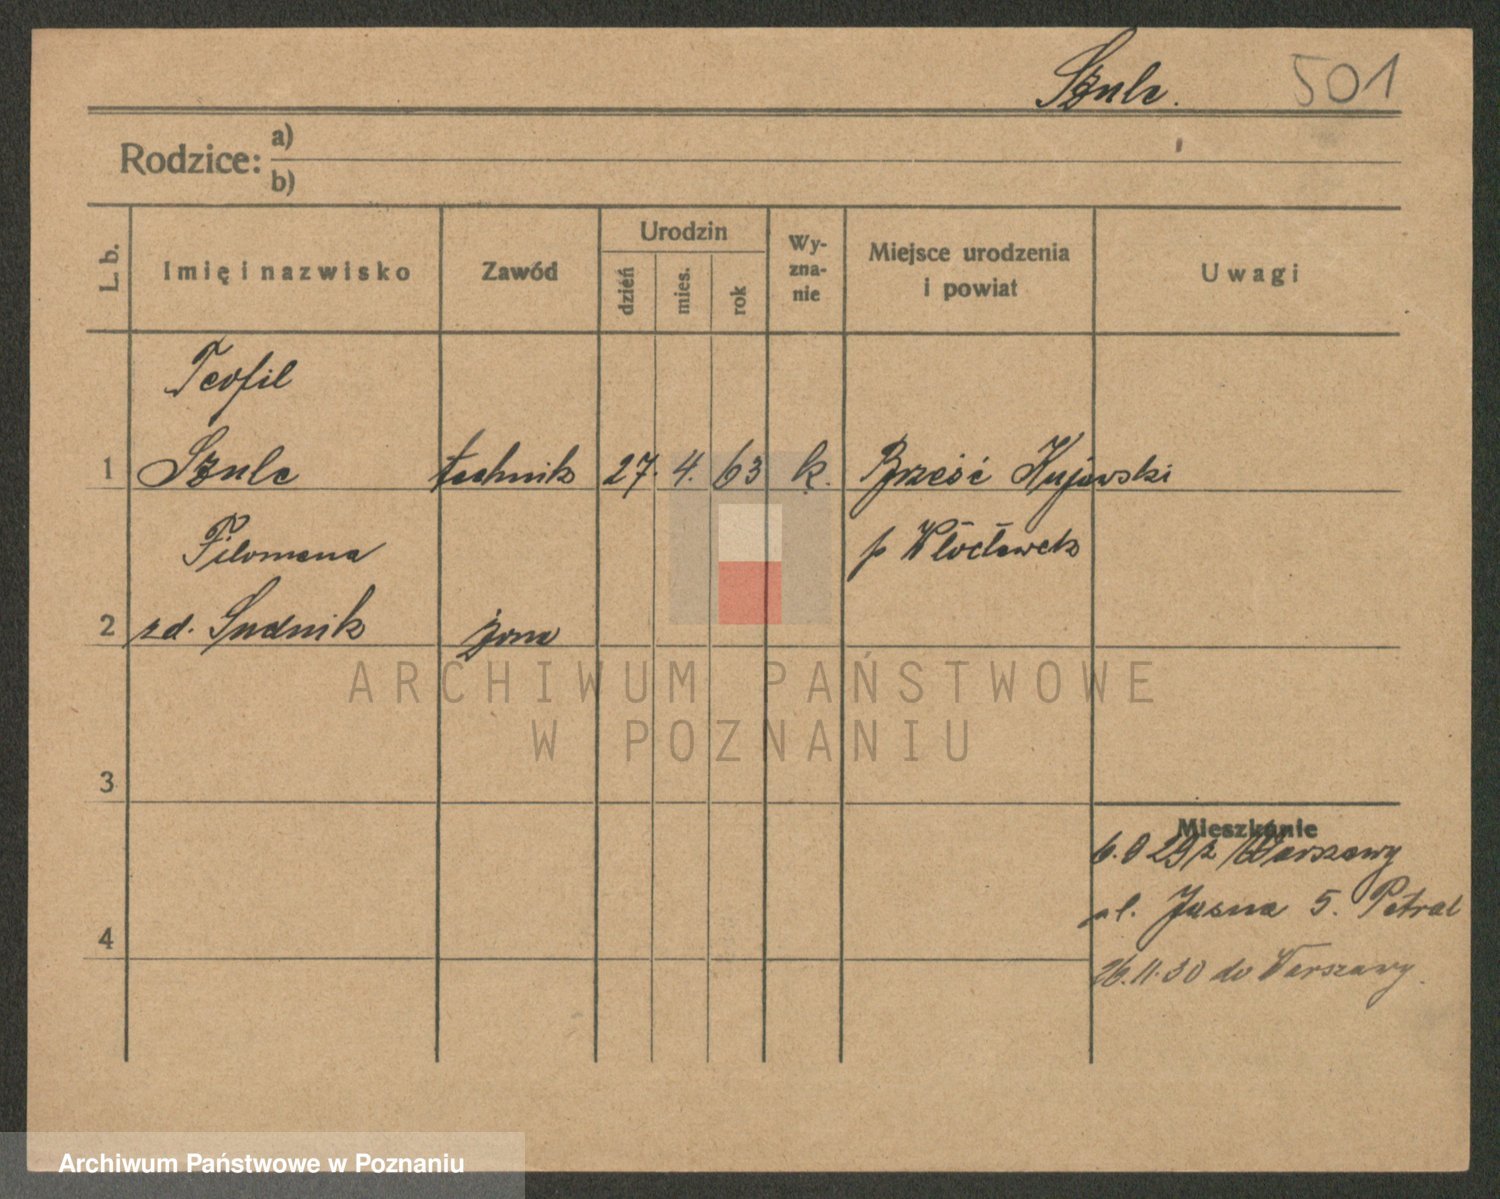 Szulc. 501
Rodzice: a)
b)
L. b. Imię i nazwisko Zawód Urodzin dzień mies. rok Wy-zna-nie Miejsce urodzenia i powiat Uwagi
Teofil
1 Szulc technik 27. 4. 63 k. Brześć Kujawski
Filomena p Włocławek
2 zd. Sudnik żona
ARCHIWUM PAŃSTWOWE
W POZNANIU
3
Mieszkanie
6.9 29 z Warszawy
4 ul. Jasna 5. Petral
26.11.30 do Warszawy.
Archiwum Państwowe w Poznaniu